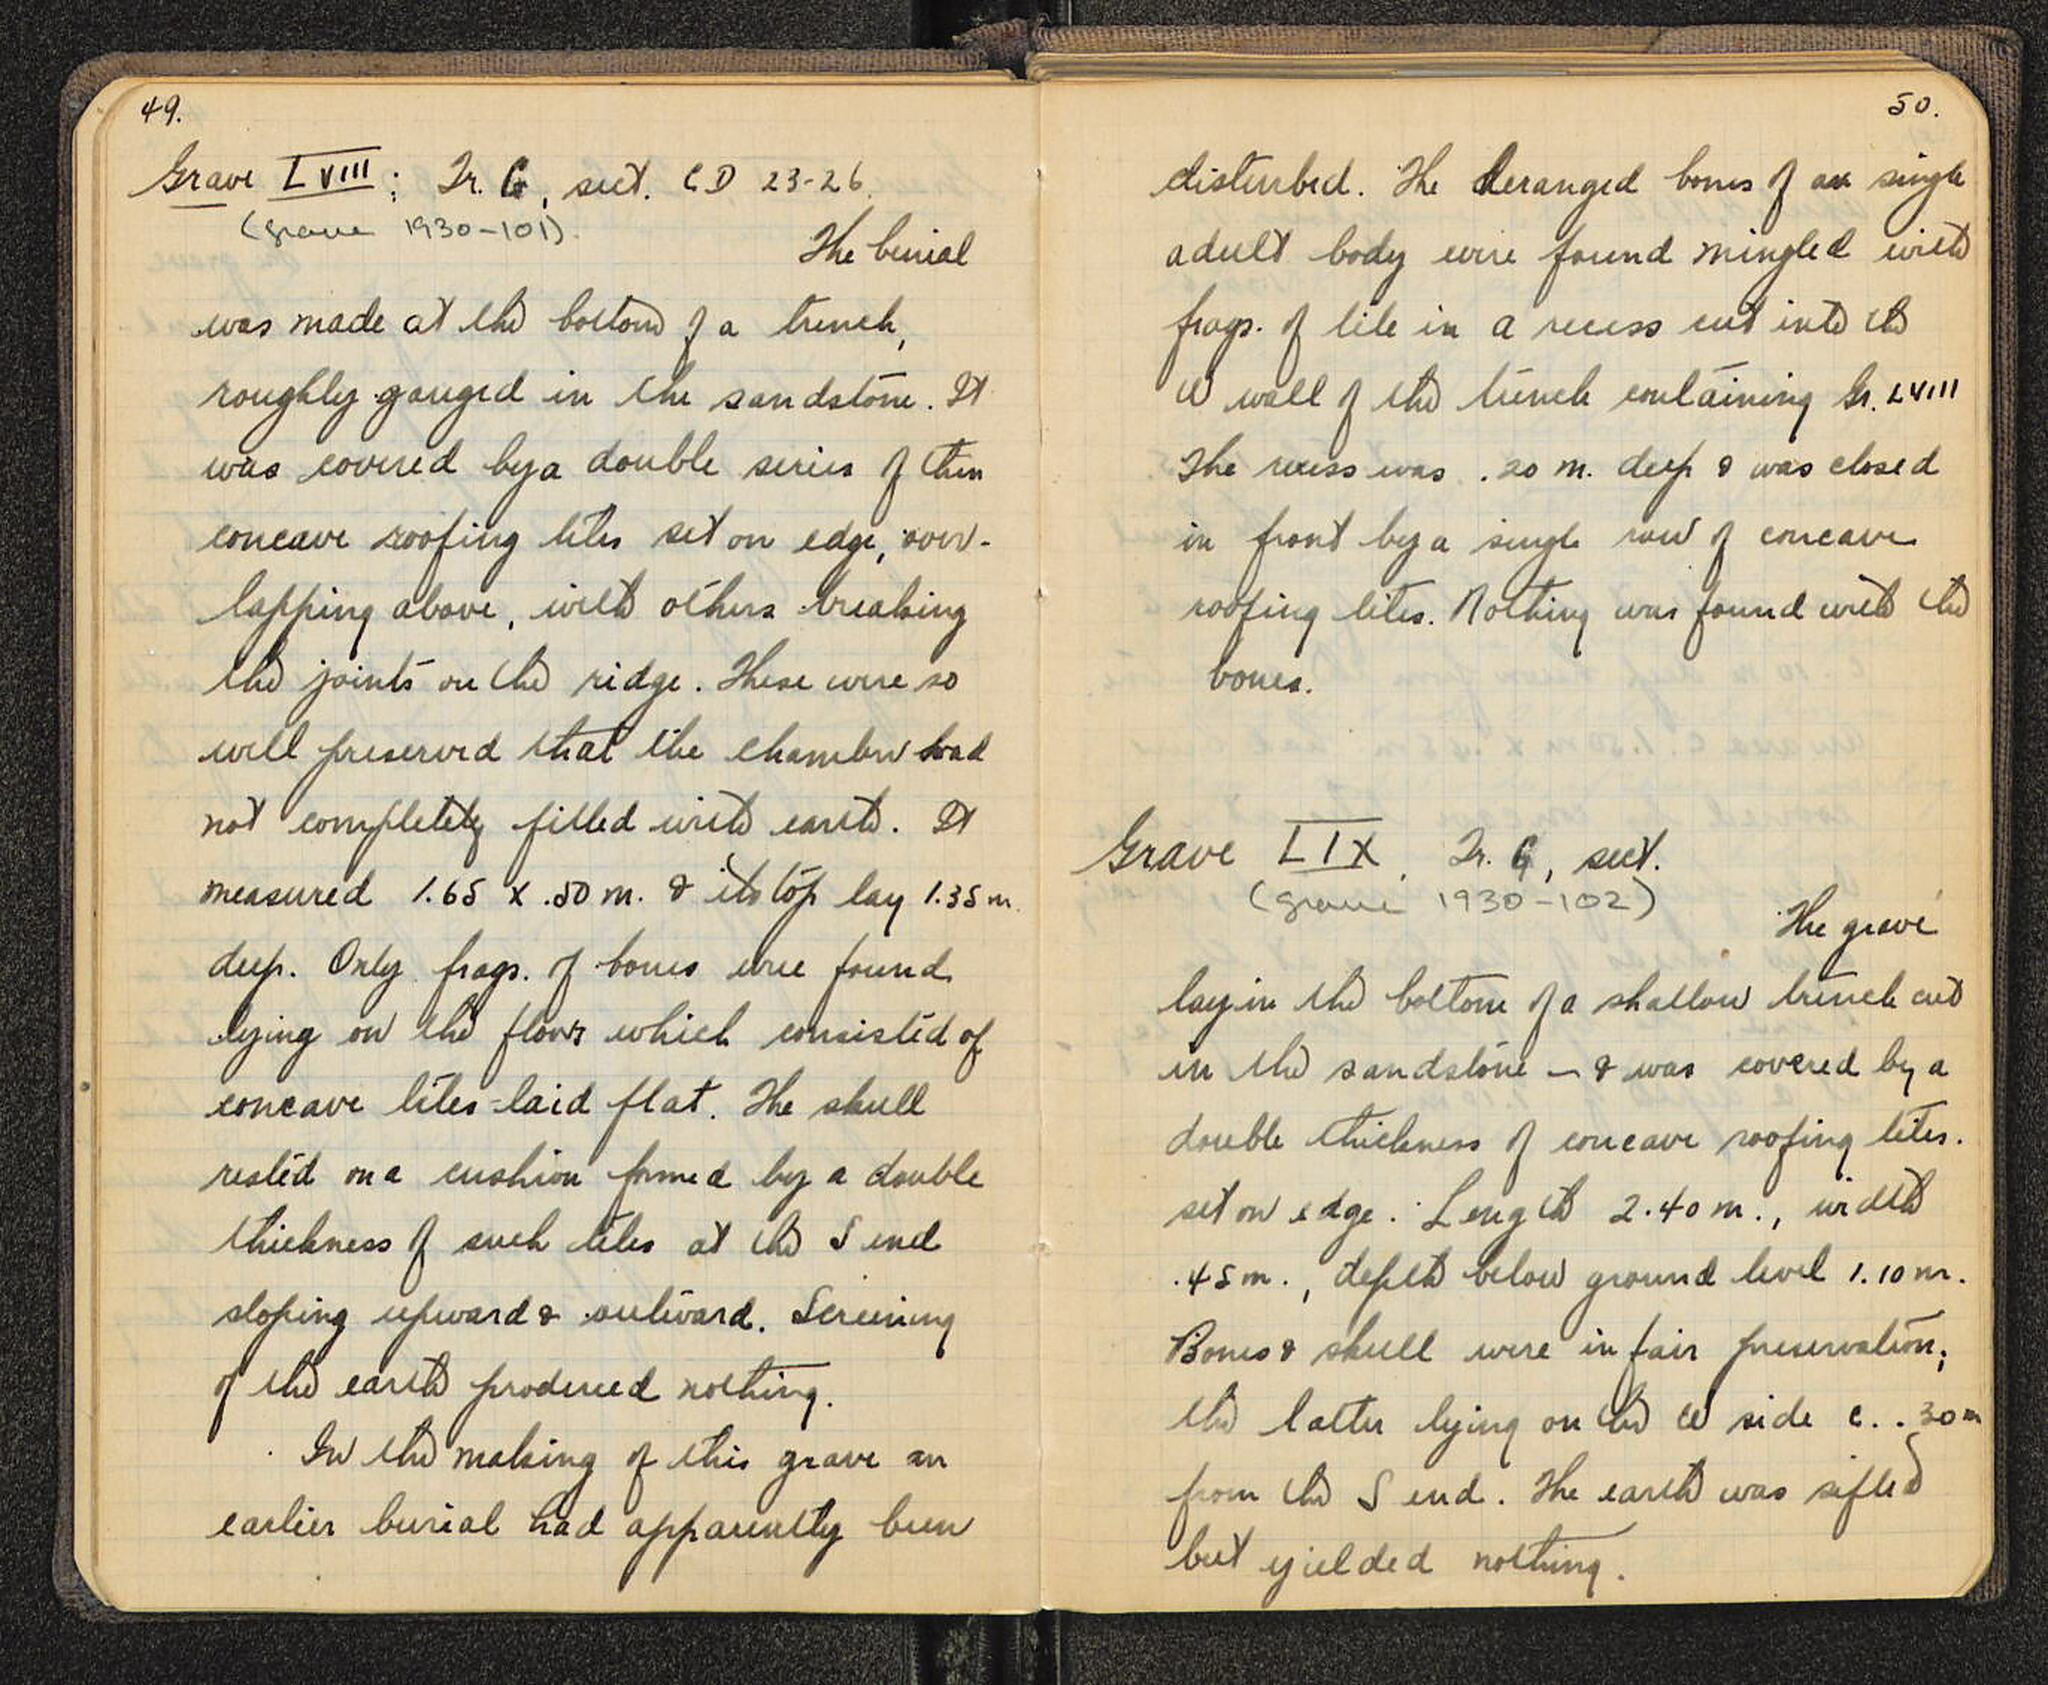 49.
Grave LVIII: Tr. G, sect. CD 23-26.
(grave 1930-101).
The burial
was made at the bottom of a trench,
roughly gouged in the sandstone. It
was covered by a double series of thin
concave roofing tiles set on edge, over-
lapping above, with others breaking
the joints on the ridge. These were so
well preserved that the chamber had
not completely filled with earth. It
measured 1.65 x .50 m. & its top lay 1.35 m.
deep. Only frags. of bones were found
lying on the floor which consisted of
concave tiles laid flat. The skull
rested on a cushion formed by a double
thickness of such tiles at the S end
sloping upward & outward. Screening
of the earth produced nothing.
In the making of this grave an
earlier burial had apparently been
50.
disturbed. The deranged bones of a single
adult body were found mingled with
frags. of tile in a recess cut into the
W wall of the trench containing Gr. LVIII
The recess was .20 m. deep & was closed
in front by a single row of concave
roofing tiles. Nothing was found with the
bones.
Grave LIX. Tr. G, sect.
(grave 1930-102)
The grave
lay in the bottom of a shallow trench cut
in the sandstone — & was covered by a
double thickness of concave roofing tiles.
set on edge. Length 2.40 m., width
.45 m., depth below ground level 1.10 m.
Bones & skull were in fair preservation;
the latter lying on the W side c. .30 m
from the S end. The earth was sifted
but yielded nothing.